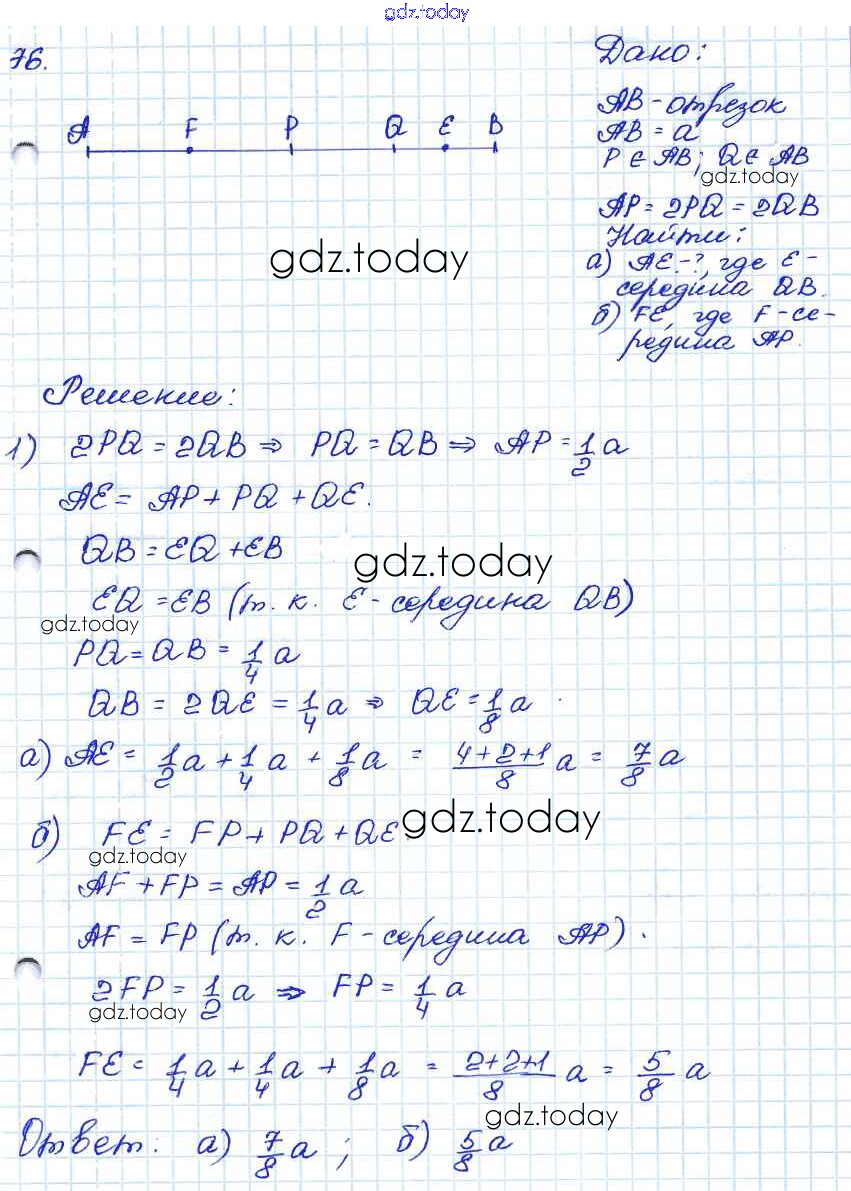 gdz.today
76.
Дано:
A F P Q E B
AB - отрезок
AB = a
P ∈ AB; Q ∈ AB
gdz.today
AP = 2PQ = 2QB
Найти:
gdz.today
а) AE - ?, где E -
середина QB.
б) FE, где F - се-
редина AP.
Решение:
1) 2PQ = 2QB ⇒ PQ = QB ⇒ AP = 1/2 a
AE = AP + PQ + QE.
QB = EQ + EB
gdz.today
EQ = EB (т. к. E - середина QB)
gdz.today
PQ = QB = 1/4 a
QB = 2QE = 1/4 a ⇒ QE = 1/8 a
а) AE = 1/2 a + 1/4 a + 1/8 a = (4+2+1)/8 a = 7/8 a
б) FE = FP + PQ + QE
gdz.today
gdz.today
AF + FP = AP = 1/2 a
AF = FP (т. к. F - середина AP).
2FP = 1/2 a ⇒ FP = 1/4 a
gdz.today
FE = 1/4 a + 1/4 a + 1/8 a = (2+2+1)/8 a = 5/8 a
gdz.today
Ответ: а) 7/8 a; б) 5/8 a